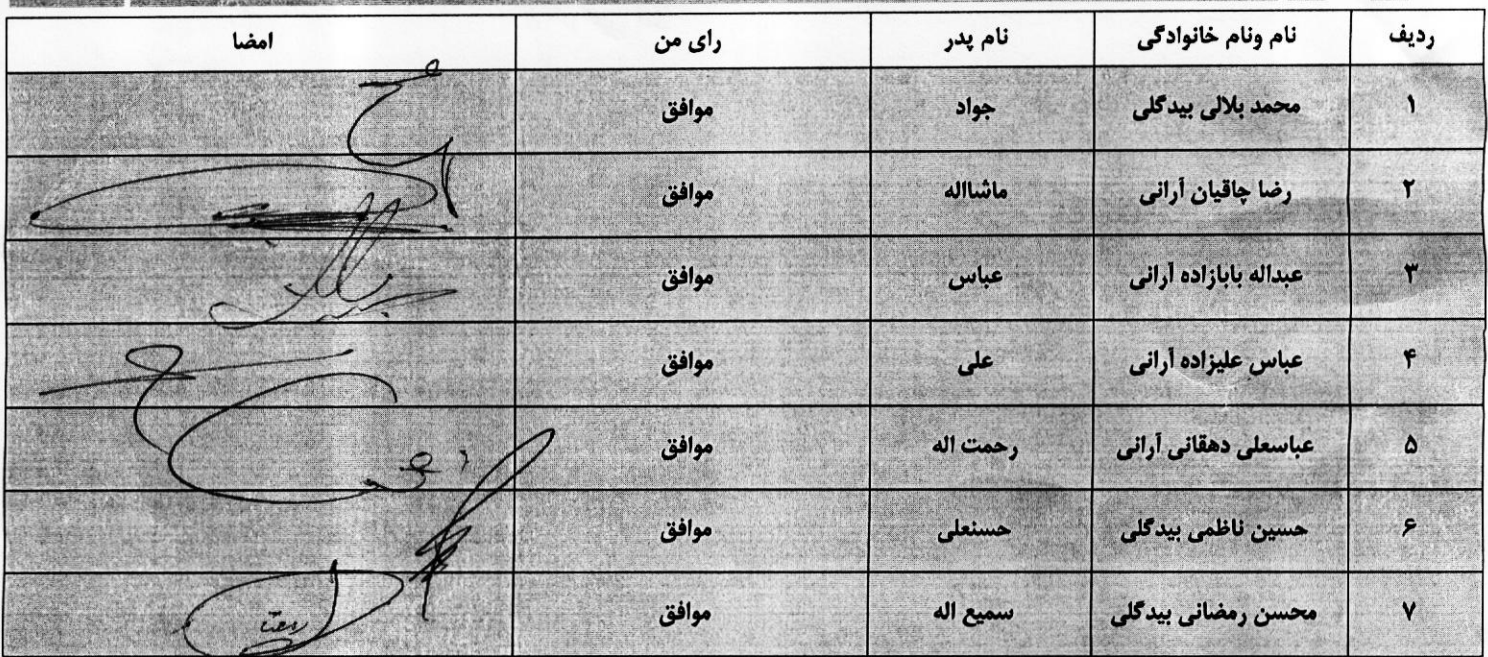 ردیف نام ونام خانوادگی نام پدر رای من امضا
۱ محمد بلالی بیدگلی جواد موافق
۲ رضا چاقیان آرانی ماشااله موافق
۳ عبداله بابازاده آرانی عباس موافق
۴ عباس علیزاده آرانی علی موافق
۵ عباسعلی دهقانی آرانی رحمت اله موافق
۶ حسین ناظمی بیدگلی حسنعلی موافق
۷ محسن رمضانی بیدگلی سمیع اله موافق